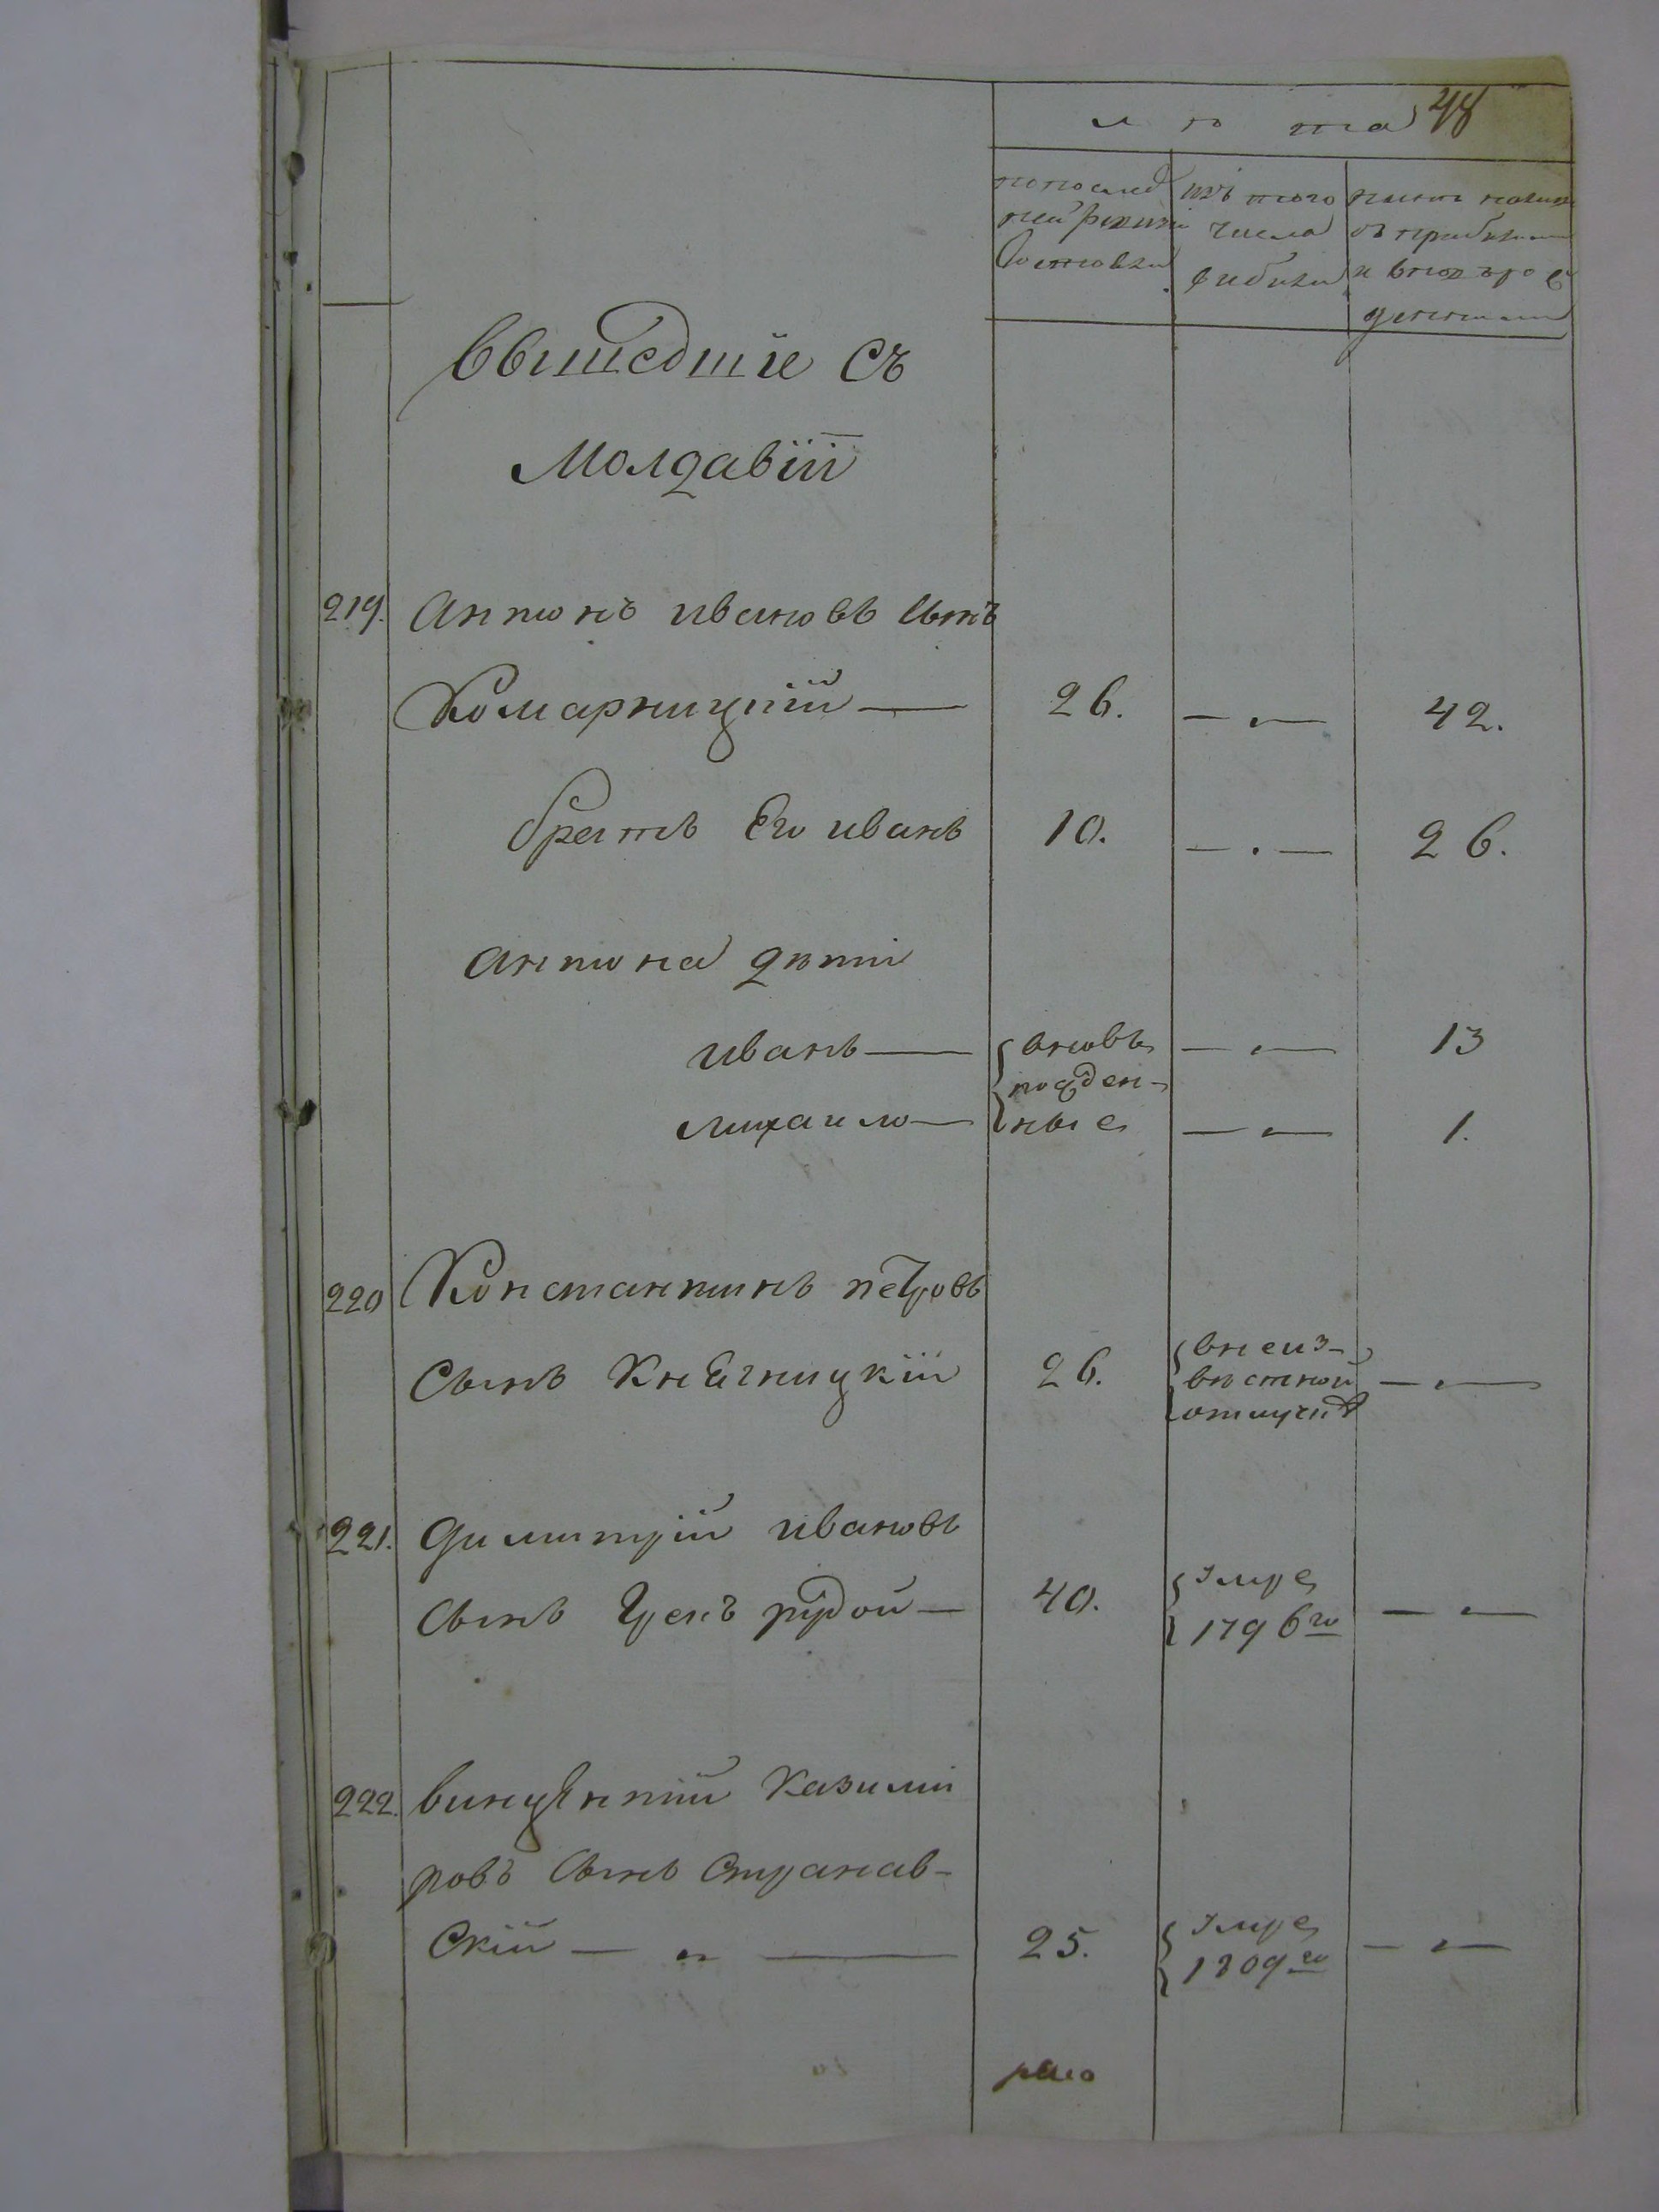 48
лѣта
по послед
ней ревизіи
состояли
изъ того
числа
выбыли
ныне налицо
съ прибылыми
и вновь рож
денными
Вышедшіе съ
Молдавіи
219. Антонъ ивановъ сынъ
Комарницкій — 26. — „ — 42.
братъ Его иванъ 10. — „ — 26.
антона дѣти
иванъ — вновь — „ — 13
рожден-
михаило — ные — „ — 1.
220 Константинъ петровъ
Сынъ Княгницкій 26. в неиз- — „ —
вѣстной
отлучкѣ
221. Димитрій ивановъ
сынъ рудой — 40. Умре — „ —
1796го
222. винцентій Казими
ровъ сынъ Странав-
Скій — „ — 25. Умре — „ —
1809го